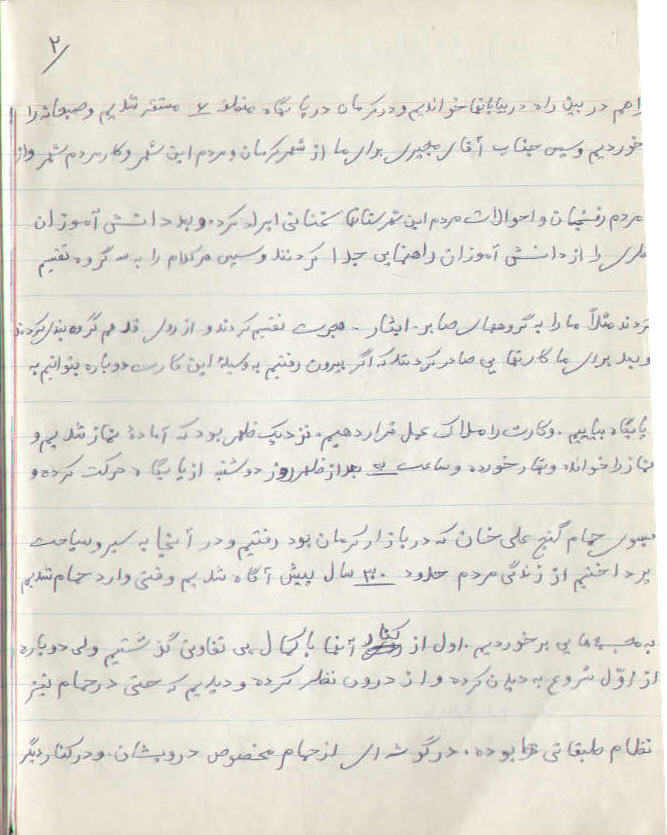 ۲
را هم در بین راه در بیابانها خواندیم و در کرمان در پایگاه منطقه ۷ مستقر شدیم و صبحانه را
خوردیم و سپس جناب آقای مجیری برای ما از شهر کرمان و مردم این شهر و کار مردم شهر و از
مردم رفسنجان و احوالات مردم این شهرستانها سخنانی ایراد کرد. و بعد دانش آموزان
نظری را از دانش آموزان راهنمایی جدا کردند و سپس هر کدام را به سه گروه تقسیم
کردند مثلاً ما را به گروههای صابر - ایثار - هجرت تقسیم کردند و از روی قد هم گروه بندی کردند
و بعد برای ما کارتهایی صادر کردند که اگر بیرون رفتیم به وسیله این کارت دوباره بتوانیم به
پایگاه بیاییم. و کارت را ملاک عمل قرار دهیم. نزدیک ظهر بود که آمادهٔ نماز شدیم و
نماز را خوانده و نهار خورده و ساعت ۳ بعد از ظهر روز دوشنبه از پایگاه حرکت کرده و
بسوی حمام گنج علی خان که در بازار کرمان بود رفتیم و در آنجا به سیر و سیاحت
پرداختیم از زندگی مردم حدود ۳۰۰ سال پیش آگاه شدیم وقتی وارد حمام شدیم
به مجسمه هایی برخوردیم. اول از کنار آنها با کمال بی تفاوتی گذشتیم ولی دوباره
از اوّل شروع به دیدن کرده و از درون نظر کرده و دیدیم که حتی در حمام نیز
نظام طبقاتی بوده. در گوشه ای از حمام مخصوص درویشان. و در کنار دیگر